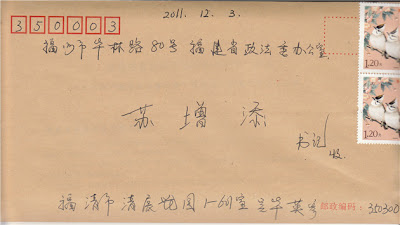 2011. 12. 3.
350003
福州市华林路80号 福建省政法委办公室.
1.20
1.20
苏增添
书记
收.
福清市清展 园1-601室吴华英 邮政编码: 350300